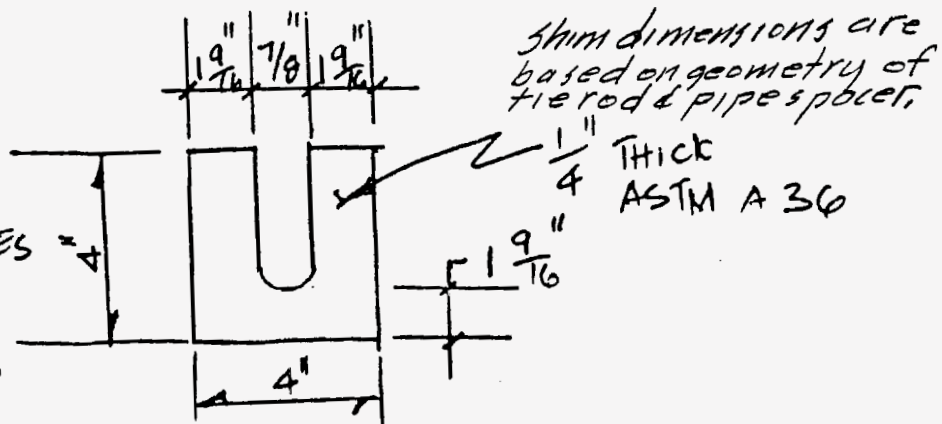 1 9/16" 7/8" 1 9/16"
Shim dimensions are
based on geometry of
tie rod & pipe spacer.
1/4" THICK
ASTM A 36
ES = 4"
1 9/16"
4"